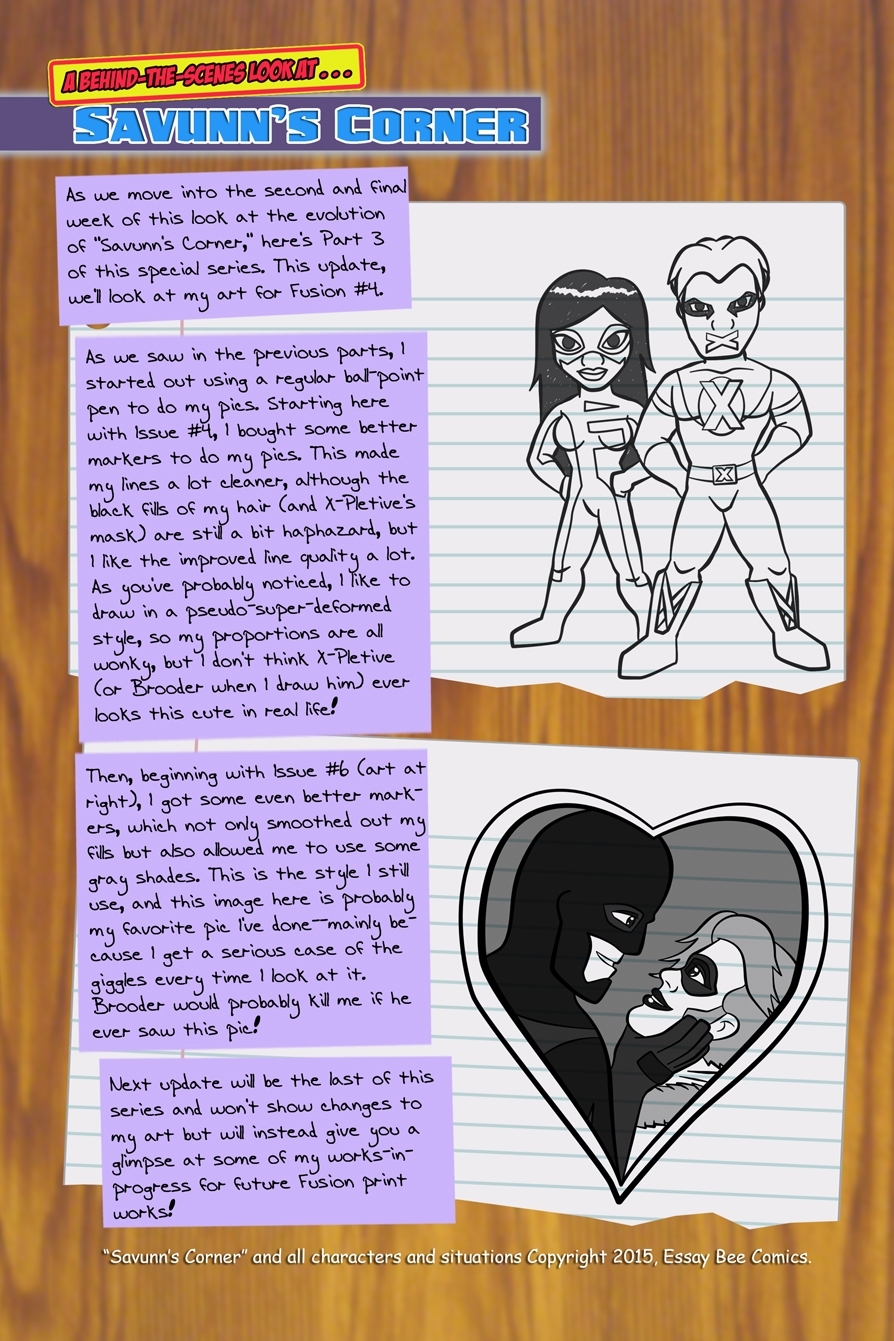 A BEHIND-THE-SCENES LOOK AT...
SAVUNN'S CORNER
As we move into the second and final
week of this look at the evolution
of "Savunn's Corner," here's Part 3
of this special series. This update,
we'll look at my art for Fusion #4.
As we saw in the previous parts, I
started out using a regular ball-point
pen to do my pics. Starting here
with Issue #4, I bought some better
markers to do my pics. This made
my lines a lot cleaner, although the
black fills of my hair (and X-Pletive's
mask) are still a bit haphazard, but
I like the improved line quality a lot.
As you've probably noticed, I like to
draw in a pseudo-super-deformed
style, so my proportions are all
wonky, but I don't think X-Pletive
(or Brooder when I draw him) ever
looks this cute in real life!
X
X
Then, beginning with Issue #6 (art at
right), I got some even better mark-
ers, which not only smoothed out my
fills but also allowed me to use some
gray shades. This is the style I still
use, and this image here is probably
my favorite pic I've done--mainly be-
cause I get a serious case of the
giggles every time I look at it.
Brooder would probably kill me if he
ever saw this pic!
Next update will be the last of this
series and won't show changes to
my art but will instead give you a
glimpse at some of my works-in-
progress for future Fusion print
works!
"Savunn's Corner" and all characters and situations Copyright 2015, Essay Bee Comics.